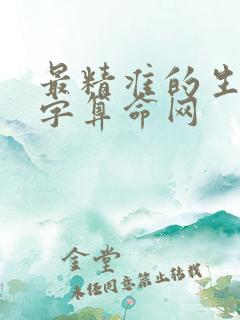 最精准的生
字算命网
金堂
未经同意禁止转载